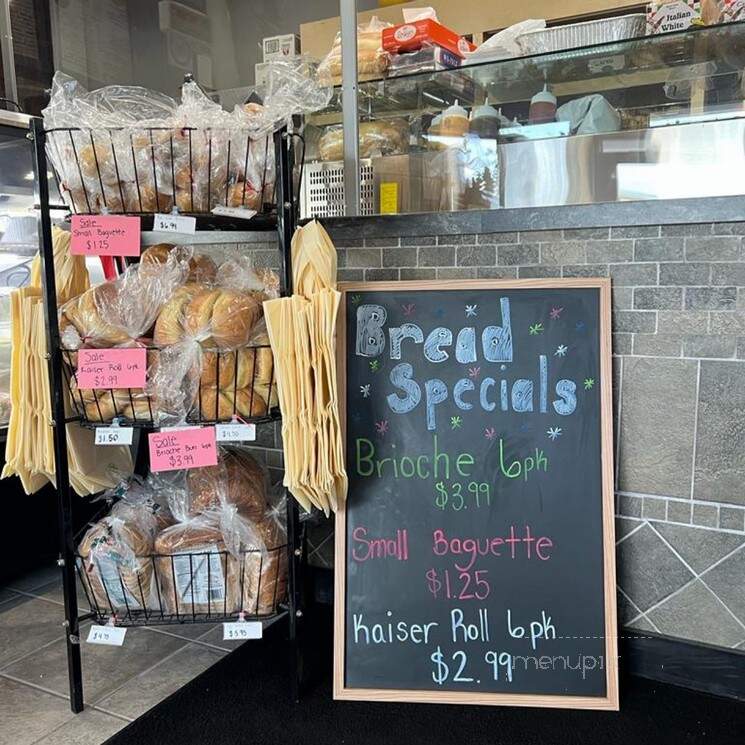 Italian
White
Sale
Small Baguette
$1.25
$6.99
Sale
Kaiser Roll 6pk
$2.99
$1.50
Sale
Brioche Bun 6pk
$3.99
Bread
Specials
Brioche 6pk
$3.99
Small Baguette
$1.25
Kaiser Roll 6pk
$2.99
$5.95
menupix